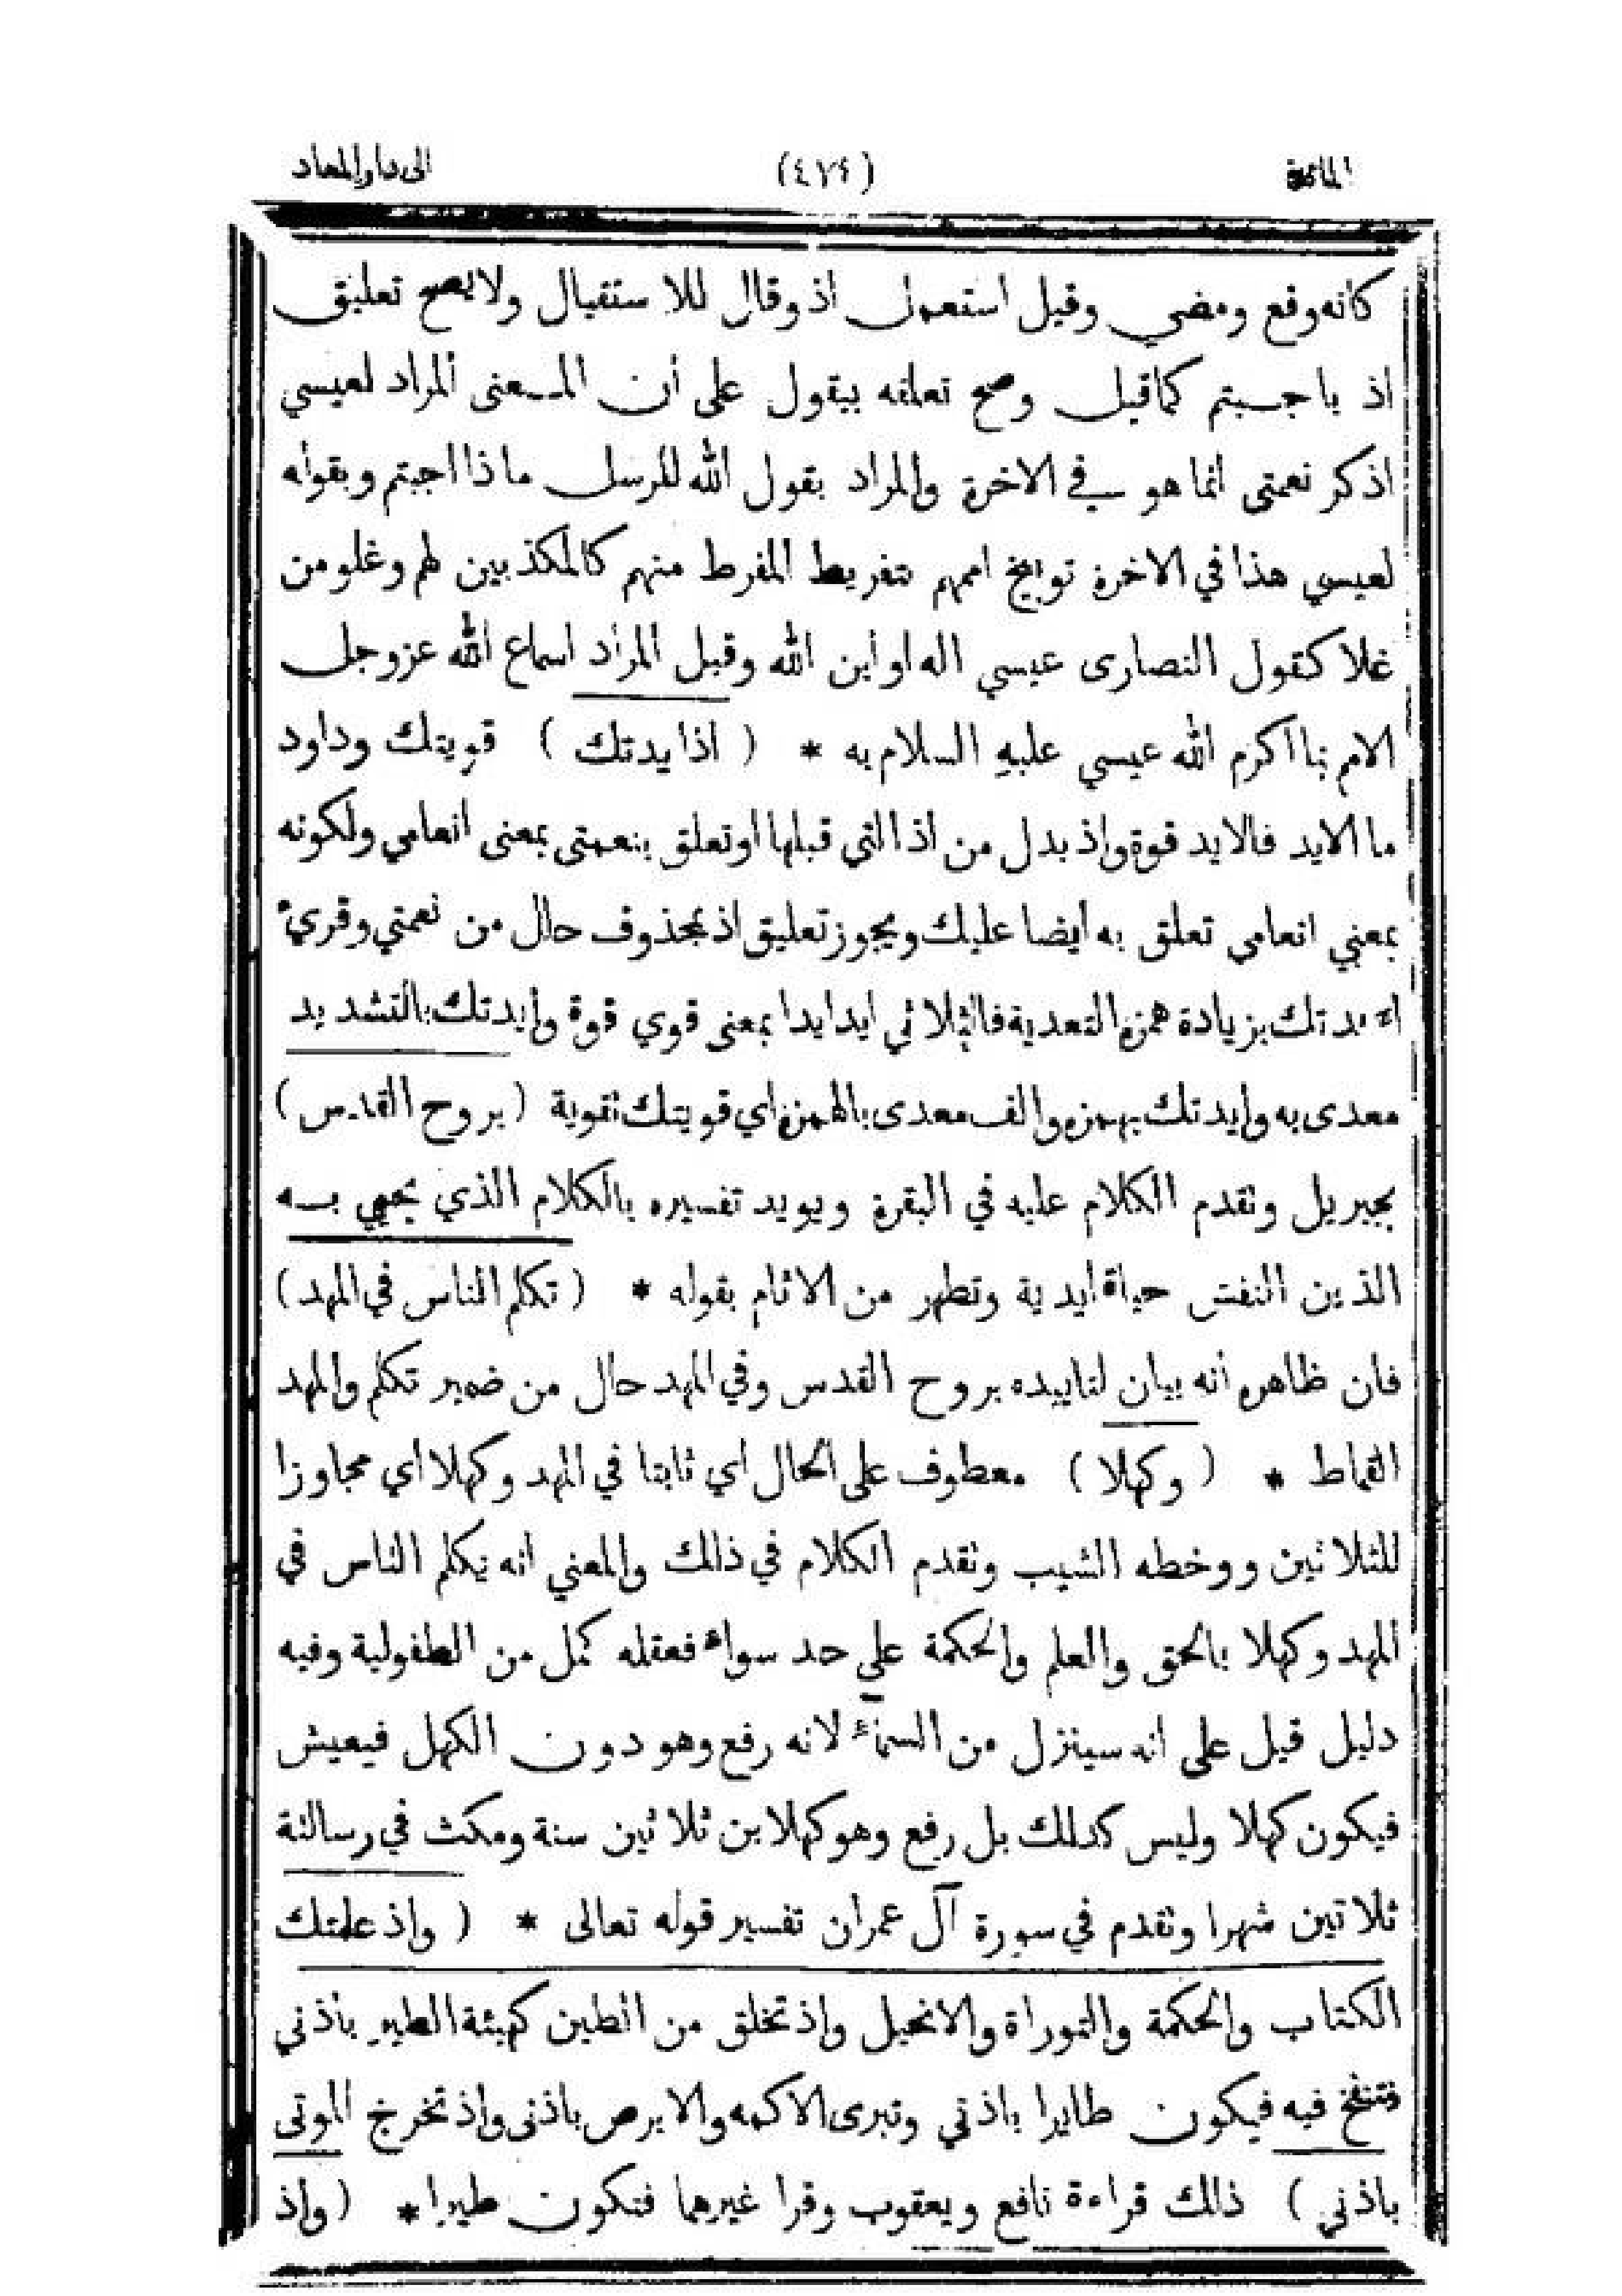 المائدة (٤٧٤) الى دار المعاد
كانه وقع ومضي وقيل استعمل اذ وقال للاستقبال ولا يصح تعليق
اذ با جبتم كما قيل وصح تعلقه بيقول على أن المعنى المراد لعيسي
اذكر نعمتى انما هو في الاخرة والمراد بقول الله للرسل ما ذا اجبتم وبقوله
لعيسي هذا في الاخرة توبيخ اممهم بتفريط المفرط منهم كالمكذبين لهم وغلو من
غلا كقول النصارى عيسي اله او ابن الله وقيل المراد اسماع الله عز وجل
الامم بما اكرم الله عيسي عليه السلام به * ( اذ ايدتك ) قويتك وداود
ما الايد فالايد قوة واذ بدل من اذ التي قبلها او تعلق بنعمتى بمعنى انعامي ولكونه
بمعني انعامى تعلق به أيضا عليك ويجوز تعليق اذ بمحذوف حال من نعمتي وقريء
اءيدتك بزيادة همزه التعدية فالثلاثي ايد ايدا بمعنى قوي قوة وأيدتك بالتشديد
معدى به وايدتك بهمزه والف معدى بالهمزة اي قويتك تقوية ( بروح القدس )
بجبريل وتقدم الكلام عليه في البقرة ويويد تفسيره بالكلام الذي يحيي به
الذين النفس حياة ابدية وتطهر من الاثام بقوله * ( تكلم الناس في المهد )
فان ظاهره أنه بيان لتاييده بروح القدس وفي المهد حال من ضمير تكلم والمهد
القماط * ( وكهلا ) معطوف على الحال اي ثابتا في المهد وكهلا اي مجاوزا
للثلاثين ووخطه الشيب وتقدم الكلام في ذلك والمعني انه يكلم الناس في
المهد وكهلا بالحق والعلم والحكمة على حد سواء فعقله كمل من الطفولية وفيه
دليل قيل على انه سينزل من السمآء لانه رفع وهو دون الكهل فيعيش
فيكون كهلا وليس كذلك بل رفع وهو كهلا بن ثلاثين سنة ومكث في رسالته
ثلاثين شهرا وتقدم في سورة آل عمران تفسير قوله تعالى * ( واذ علمتك
الكتاب والحكمة والتوراة والانجيل واذ تخلق من الطين كهيئة الطير باذني
فتنفخ فيه فيكون طايرا باذني وتبرى الاكمه والابرص باذنى واذ تخرج الموتى
باذني ) ذلك قراءة نافع ويعقوب وقرا غيرهما فتكون طيرا * ( واذ